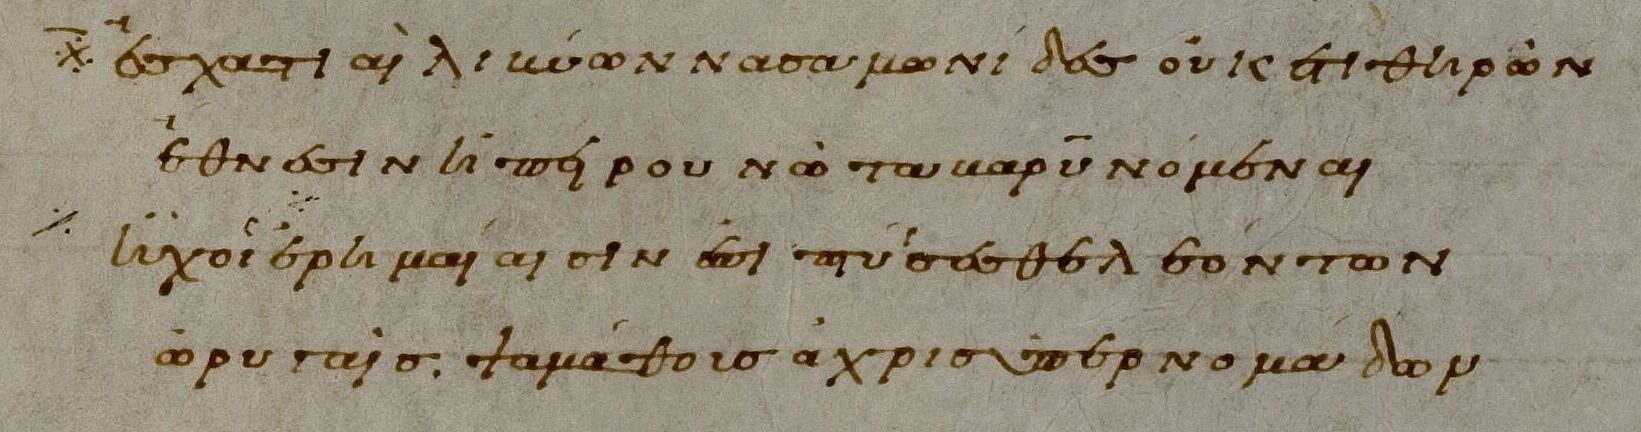 ἐσχατιαὶ λιβύων νασαμωνίδεσ οὐκ ἔτι θηρῶν
ἔθνεσιν ἠπείρου νῶτα βαρῡνόμεναι
ἠχοῖ ἐρημαίαισιν ἐπὶ πτύσεσθε λεόντων
ὠρυγαῖσ. ψαμάθοισ ἄχρισ ὑπὲρ νομάδων